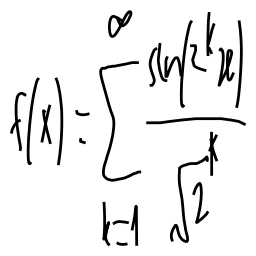 f(x) := \sum_{k=1}^{\infty} \frac{\sin(2^k x)}{\sqrt{2}^k}